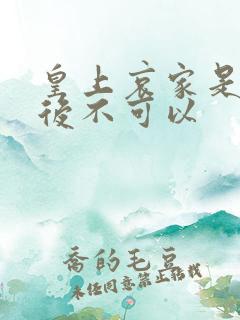 皇上哀家是
後不可以
喬的毛豆
未經同意禁止轉載